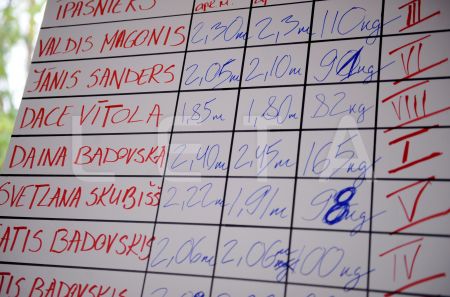 ĪPAŠNIEKS
VALDIS MAGONIS 2,30m 2,30m 110kg III
JĀNIS SANDERS 2,05m 2,10m 91kg VI
DACE VĪTOLA 1,85m 1,80m 82kg VIII
DAINA BADOVSKA 2,40m 2,45m 165kg I
SVETLANA SKUBIŠS 2,22m 1,91m 98kg V
BADOVSKIS 2,06m 2,06m 100kg IV
BADOVSKIS
LETA